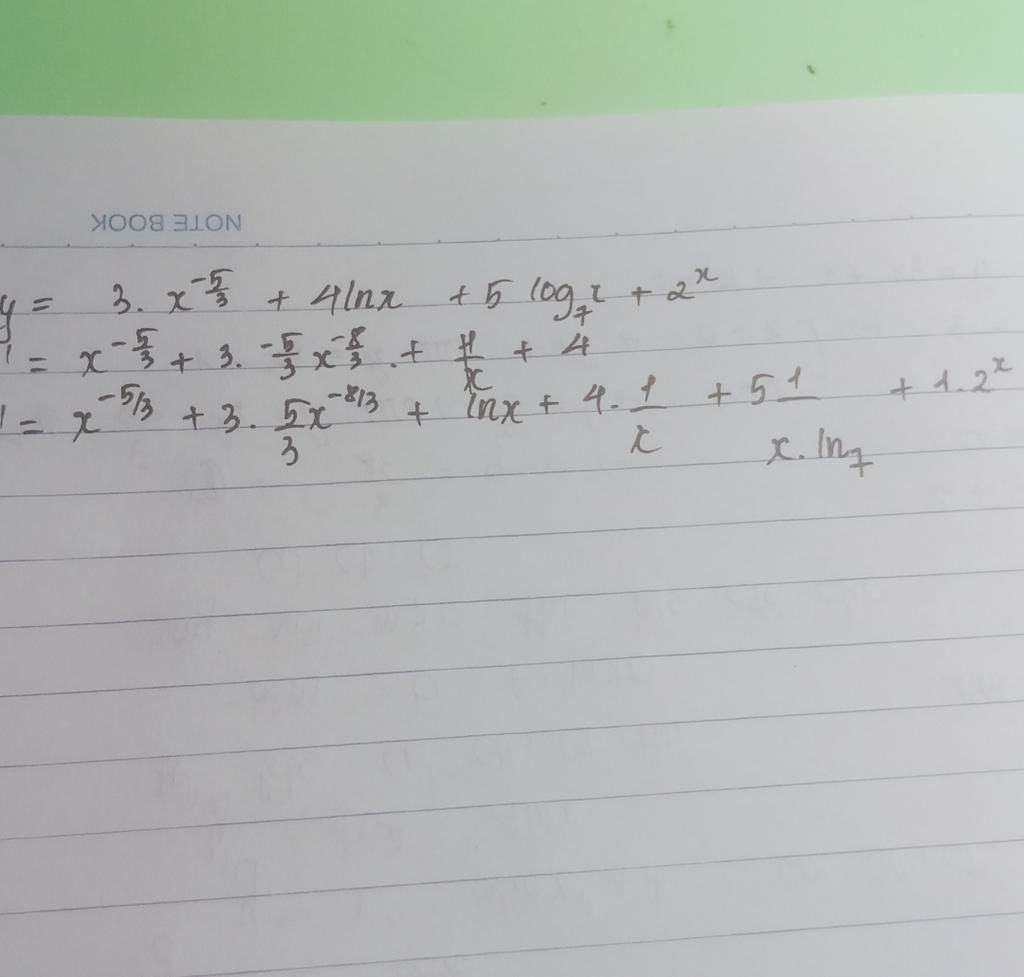 NOTE BOOK
y = 3. x^{-5/3} + 4lnx + 5 log_7 x + 2^x
' = x^{-5/3} + 3. -5/3 x^{-8/3} . + 4/x + 4
' = x^{-5/3} + 3. 5/3 x^{-8/3} + lnx + 4. 1/x + 5 1/(x. ln_7) + 1. 2^x